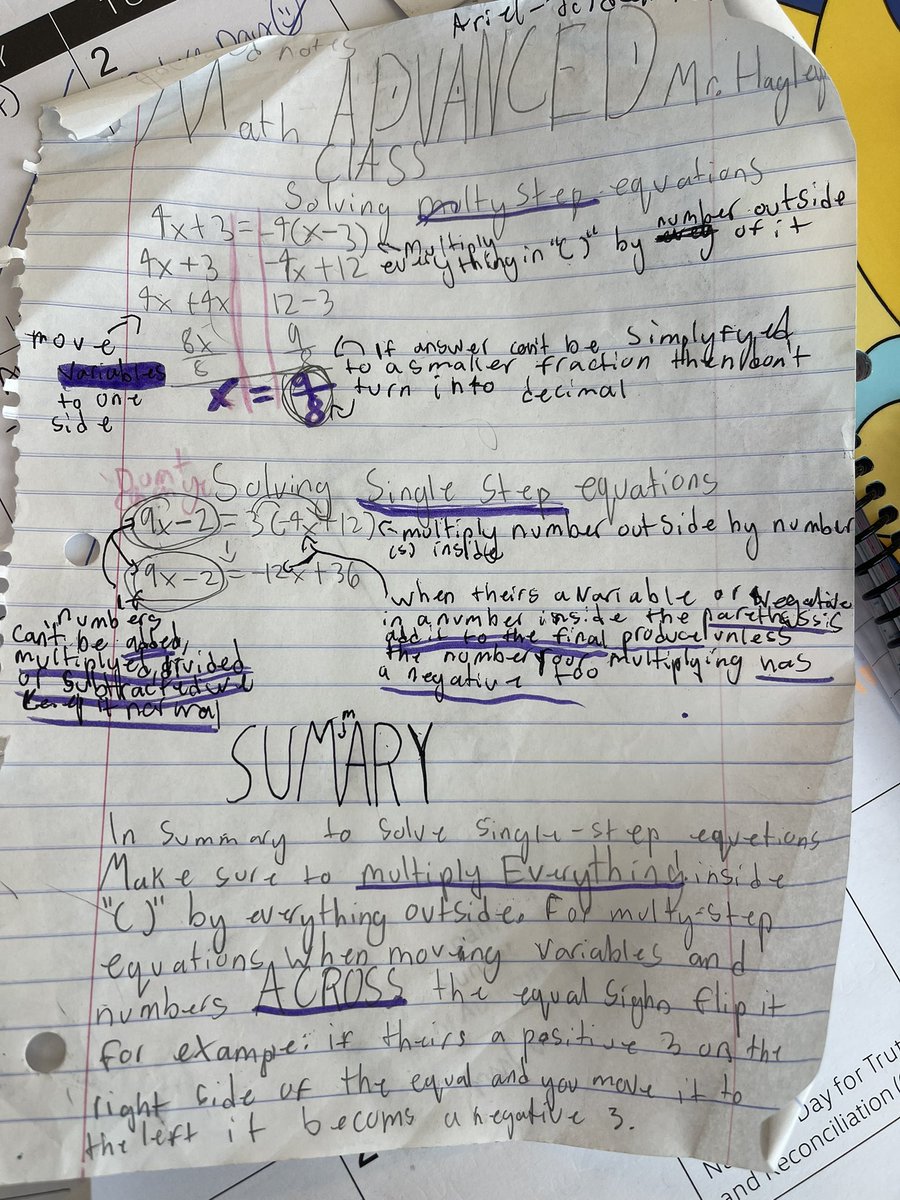 2
Ariel
notes
Math ADVANCED Mr. Hagley
CLASS
Solving multy step equations
4x+3 = -4(x-3) ← Multiply everything in "( )" by number outside of it
4x+3 -4x+12
4x+4x 12-3
move variables to one side
8x 9
8 8
If answer can't be Simplyfyed
to a smaller fraction then don't
turn into decimal
x = 9/8
Solving Single Step equations
9x-2 = 3(-4x+12) ← multiply number outside by number
(s) inside
9x-2 = -12x+36
If numbers
can't be added,
multiplyed, divided
or subtracted
keep it normal
when theirs a variable or negative
in a number inside the parethassis
add it to the final produce unless
the number your multiplying has
a negative too
SUMMARY
In summary to solve single-step equetions
Make sure to multiply Everything inside
"( )" by everything outside. For multy-step
equations, when moving variables and
numbers ACROSS the equal Sighn flip it
for example: if theirs a positive 3 on the
right side of the equal and you move it to
the left it becoms a negative 3.
2
Day for Truth
and Reconciliation